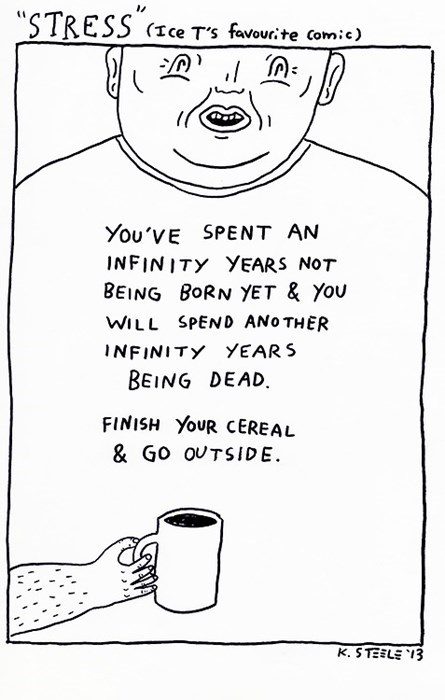 "STRESS" (Ice T's favourite comic)
YOU'VE SPENT AN
INFINITY YEARS NOT
BEING BORN YET & YOU
WILL SPEND ANOTHER
INFINITY YEARS
BEING DEAD.
FINISH YOUR CEREAL
& GO OUTSIDE.
K. STEELE '13